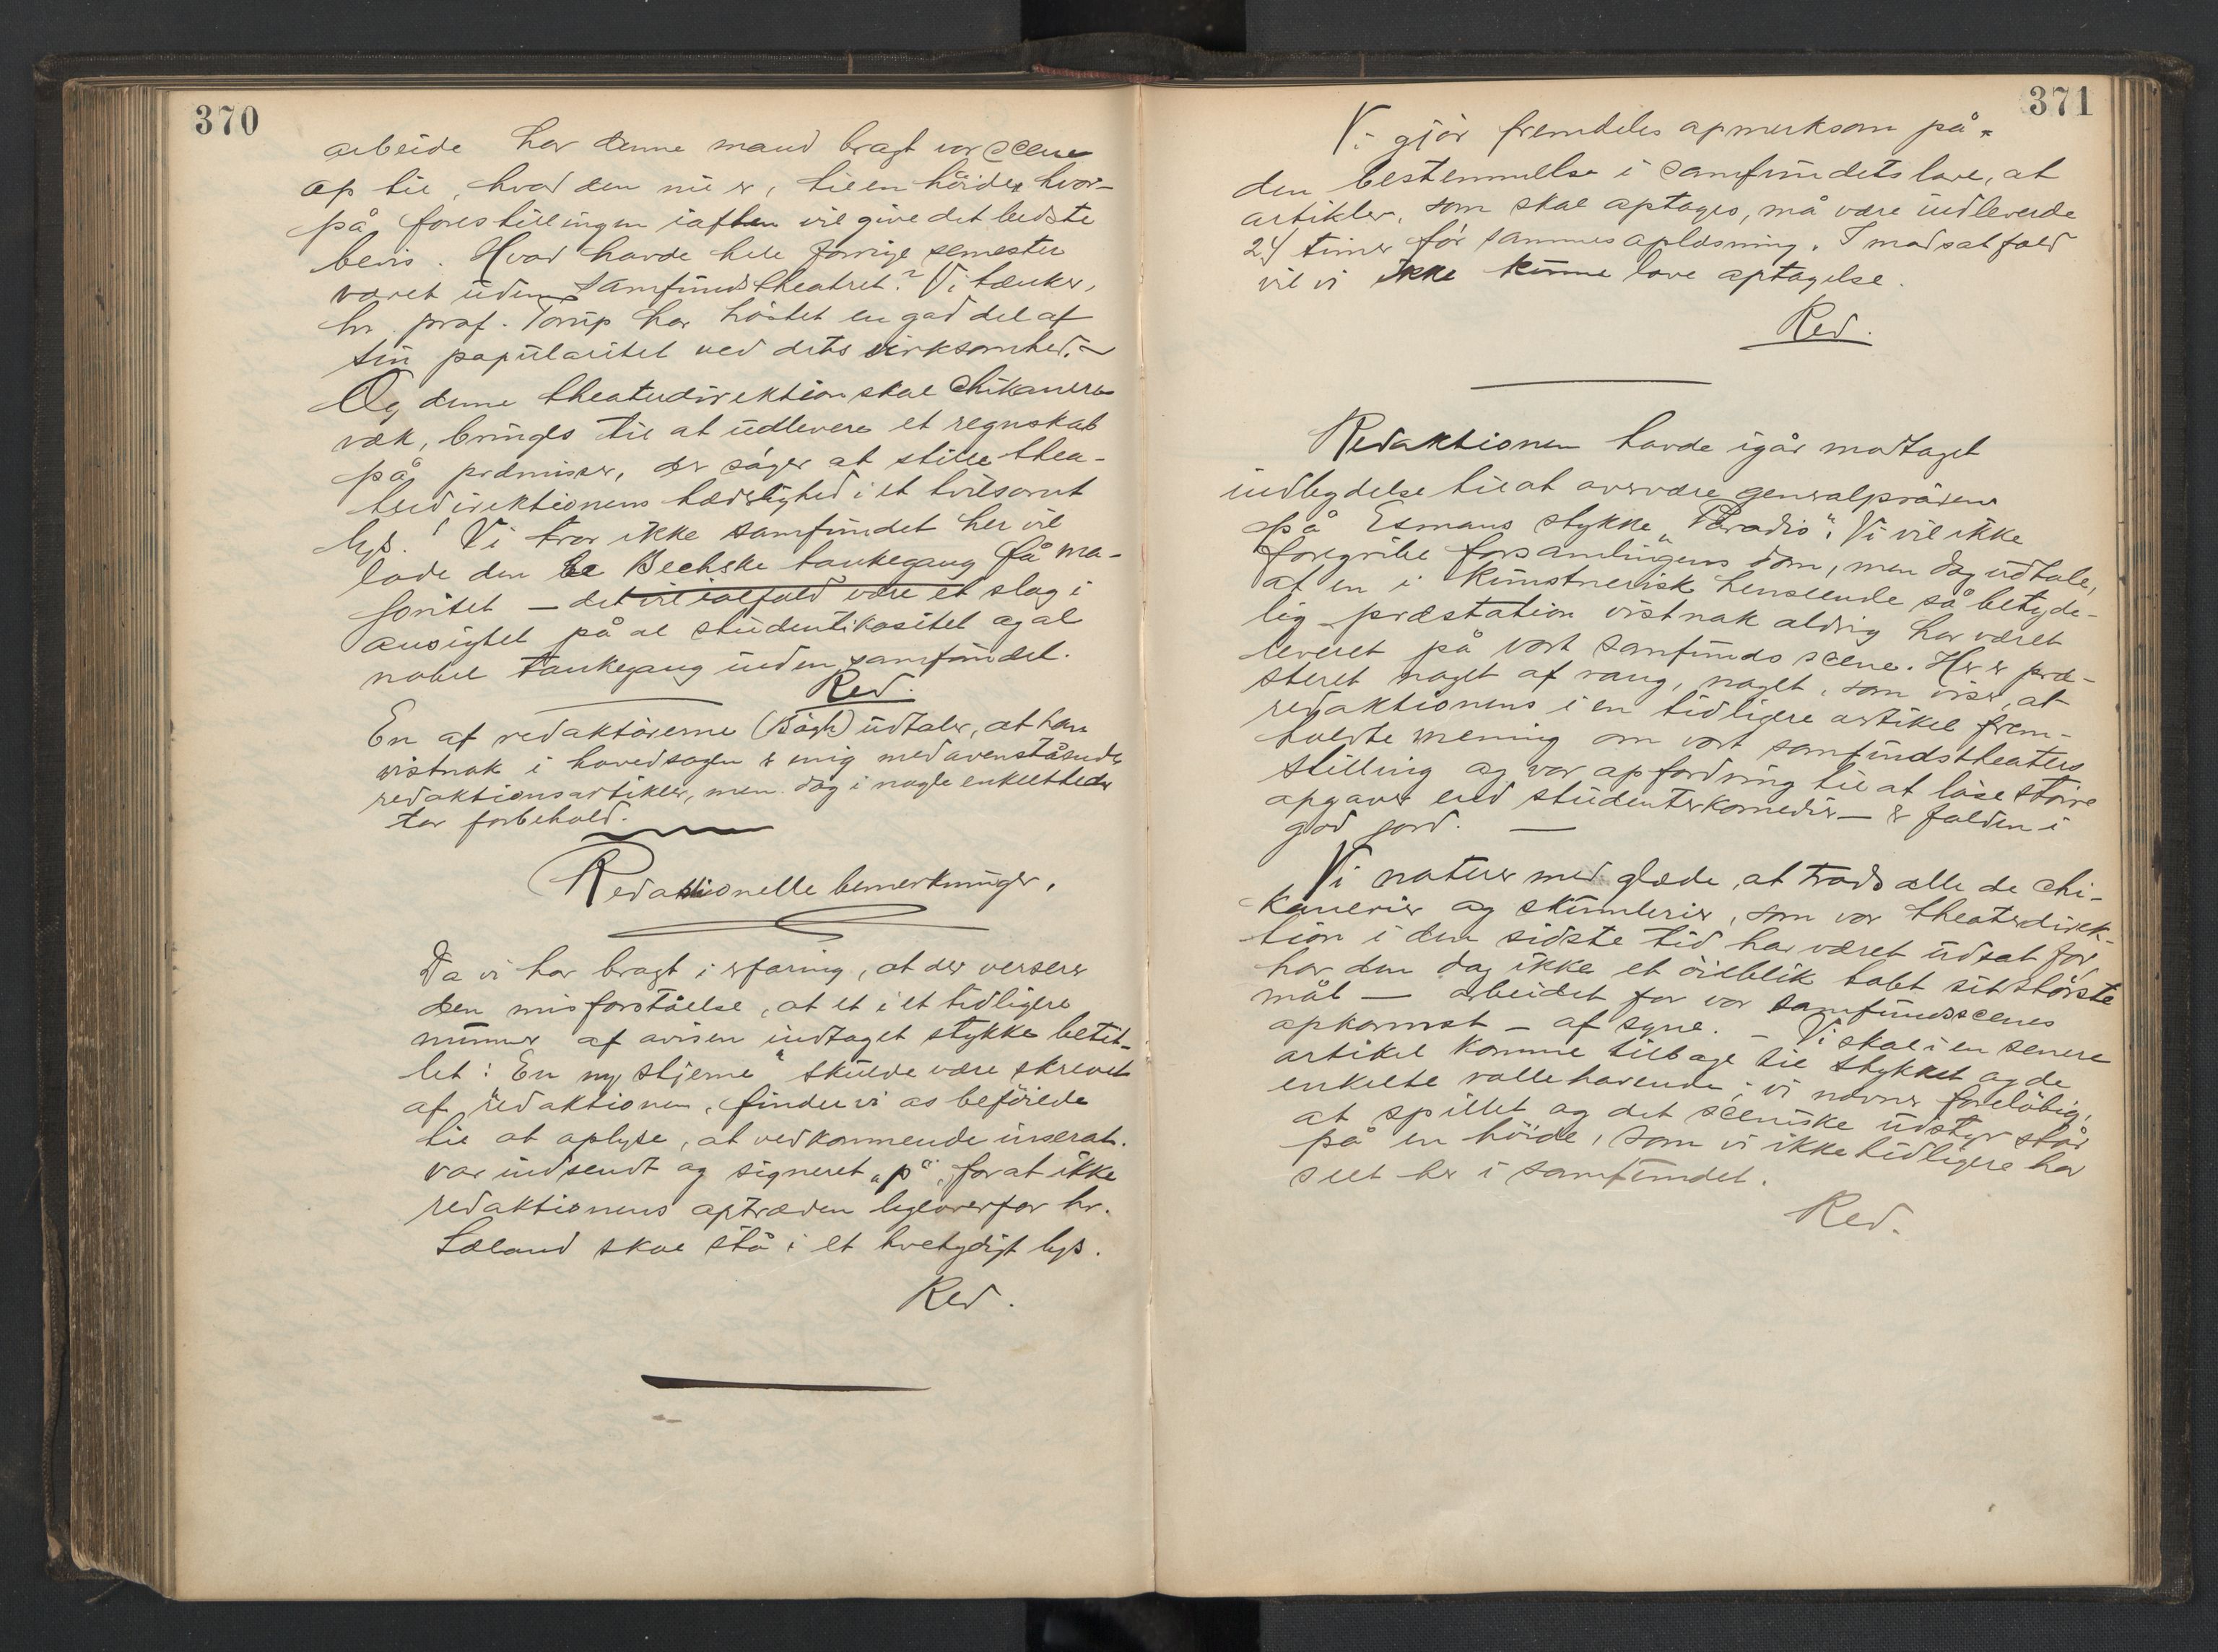 370
arbeide har denne mand bragt vor scene
op til, hvad den nu er, til en höide, hvor-
på forestillingen iaften vil give det bedste
bevis. Hvad havde hele forrige semester
været uden samfundstheatret? Vi tænker,
hr. prof. Torup har höstet en god del af
sin popularitet ved dets virksomhed. –
Og denne theaterdirektion skal chikaneres
væk, bringes til at udlevere et regnskab
på præmisser, der söger at stille thea-
terdirektionens hæderlighed i et tvilsomt
lys! Vi tror ikke samfundet her vil
lade den Bechske tankegang få ma-
joritet – det vil ialfald være et slag i
ansigtet på al studentikositet og al
nobel tankegang inden samfundet.
Red.
En af redaktörerne (Bögh) udtaler, at han
vistnok i hovedsagen er enig med ovenstående
redaktionsartikler, men dog i nogle enkeltheder
tar forbehold.
Redaktionelle bemerkninger.
Da vi har bragt i erfaring, at der verserer
den misforståelse, at et i et tidligere
nummer af avisen indtaget stykke betit-
let: "En ny stjerne" skulde være skrevet
af redaktionen, finder vi os beföiede
til at oplyse, at vedkommende inserat
var indsendt og signeret "p", for at ikke
redaktionens optræden ligeoverfor hr.
Sæland skal stå i et tvetydigt lys.
Red.
371
Vi gjör fremdeles opmerksom på
den bestemmelse i samfundets love, at
artikler, som skal optages, må være indleverede
24 timer för sammes oplæsning. I modsat fald
vil vi ikke kunne love optagelse.
Red.
Redaktionen havde igår modtaget
indbydelse til at overvære generalpröven
på Esmans stykke "Paradis". Vi vil ikke
foregribe forsamlingens dom, men dog udtale,
at en i kunstnerisk henseende så betyde-
lig præstation vistnok aldrig har været
leveret på vort samfunds scene. Her er præ-
steret noget af rang, noget, som viser, at
redaktionens i en tidligere artikel frem-
holdte mening om vort samfundstheaters
stilling og vor opfordring til at löse större
opgaver end studenterkomedier – er falden i
god jord. –
Vi noterer med glæde, at trods alle de chi-
kanerier og skumlerier, som vor theaterdirek-
tion i den sidste tid har været udsat for,
har den dog ikke et öieblik tabt sit störste
mål – arbeidet for vor samfundsscenes
opkomst – af syne. – Vi skal i en senere
artikel komme tilbage til stykket og de
enkelte rollehavende; vi nævner forelöbig,
at spillet og det sceniske udstyr står
på en höide, som vi ikke tidligere har
seet her i samfundet.
Red.